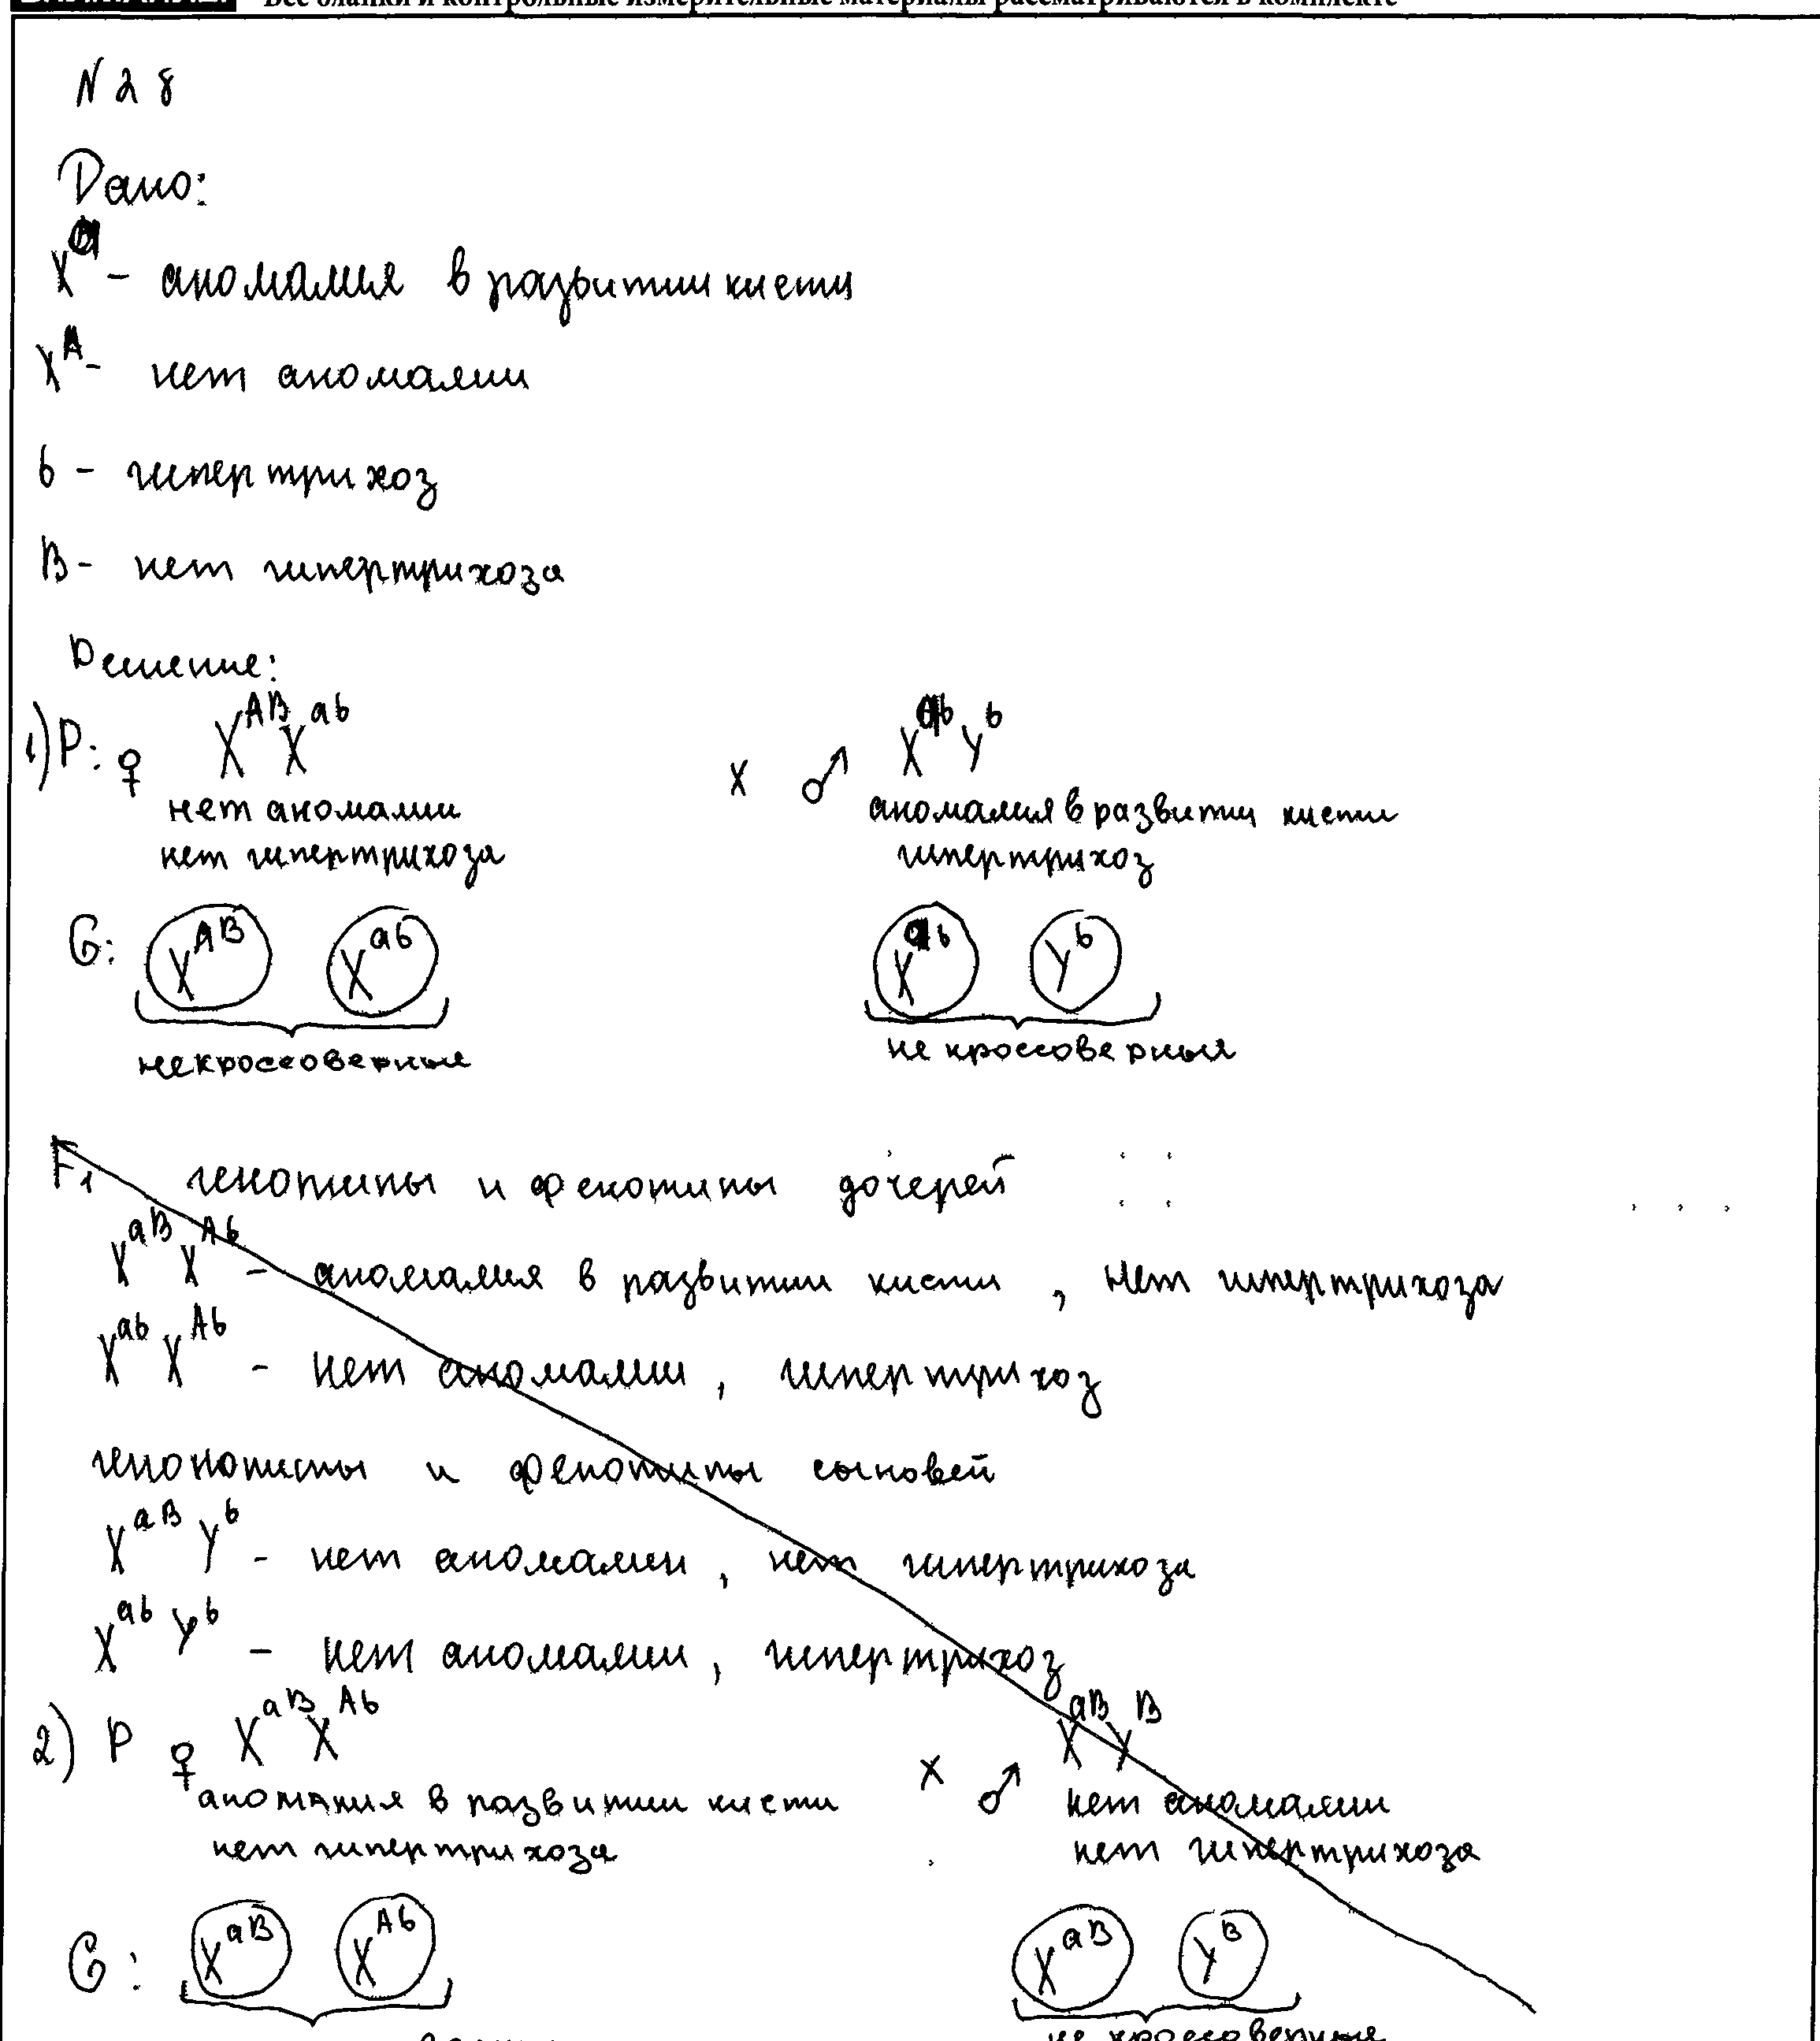 Все бланки и контрольные измерительные материалы рассматриваются в комплекте
N 28
Дано:
X^a - аномалия в развитии кисти
X^A - нет аномалии
b - гипертрихоз
B - нет гипертрихоза
Решение:
1) P: ♀ X^AB X^ab x ♂ X^ab Y^b
нет аномалии аномалия в развити кисти
нет гипертрихоза гипертрихоз
G: X^AB X^ab X^ab Y^b
некроссоверные не кроссоверные
F1 генотипы и фенотипы дочерей
X^aB X^Ab - аномалия в развитии кисти, нет гипертрихоза
X^ab X^Ab - нет аномалии, гипертрихоз
генонотипы и фенотипы сыновей
X^aB Y^b - нет аномалии, нет гипертрихоза
X^ab Y^b - нет аномалии, гипертрихоз
2) P ♀ X^aB X^Ab x ♂ X^aB Y^B
аномалия в развитии кисти нет аномалии
нет гипертрихоза нет гипертрихоза
G: X^aB X^Ab X^aB Y^B
не кроссоверные